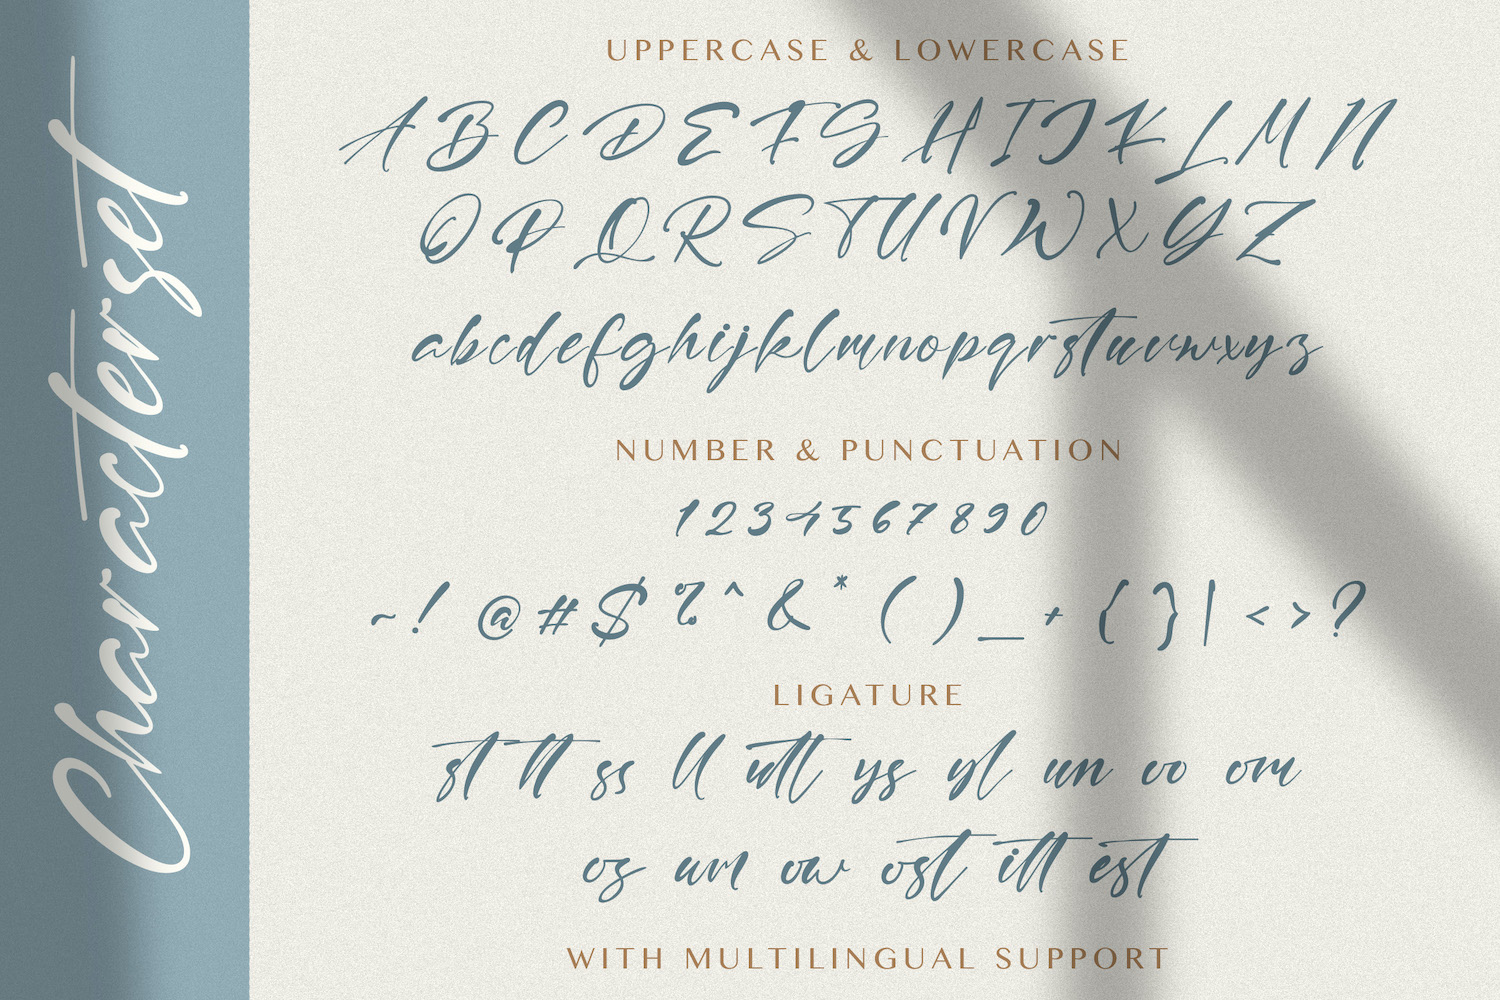 Characterset
UPPERCASE & LOWERCASE
A B C D E F G H I J K L M N
O P Q R S T U V W X Y Z
abcdefghijklmnopqrstuvwxyz
NUMBER & PUNCTUATION
1 2 3 4 5 6 7 8 9 0
~ ! @ # $ % ^ & * ( ) _ + { } | < > ?
LIGATURE
st tt ss ll utt ys yt un oo om
os um ow ost itt est
WITH MULTILINGUAL SUPPORT